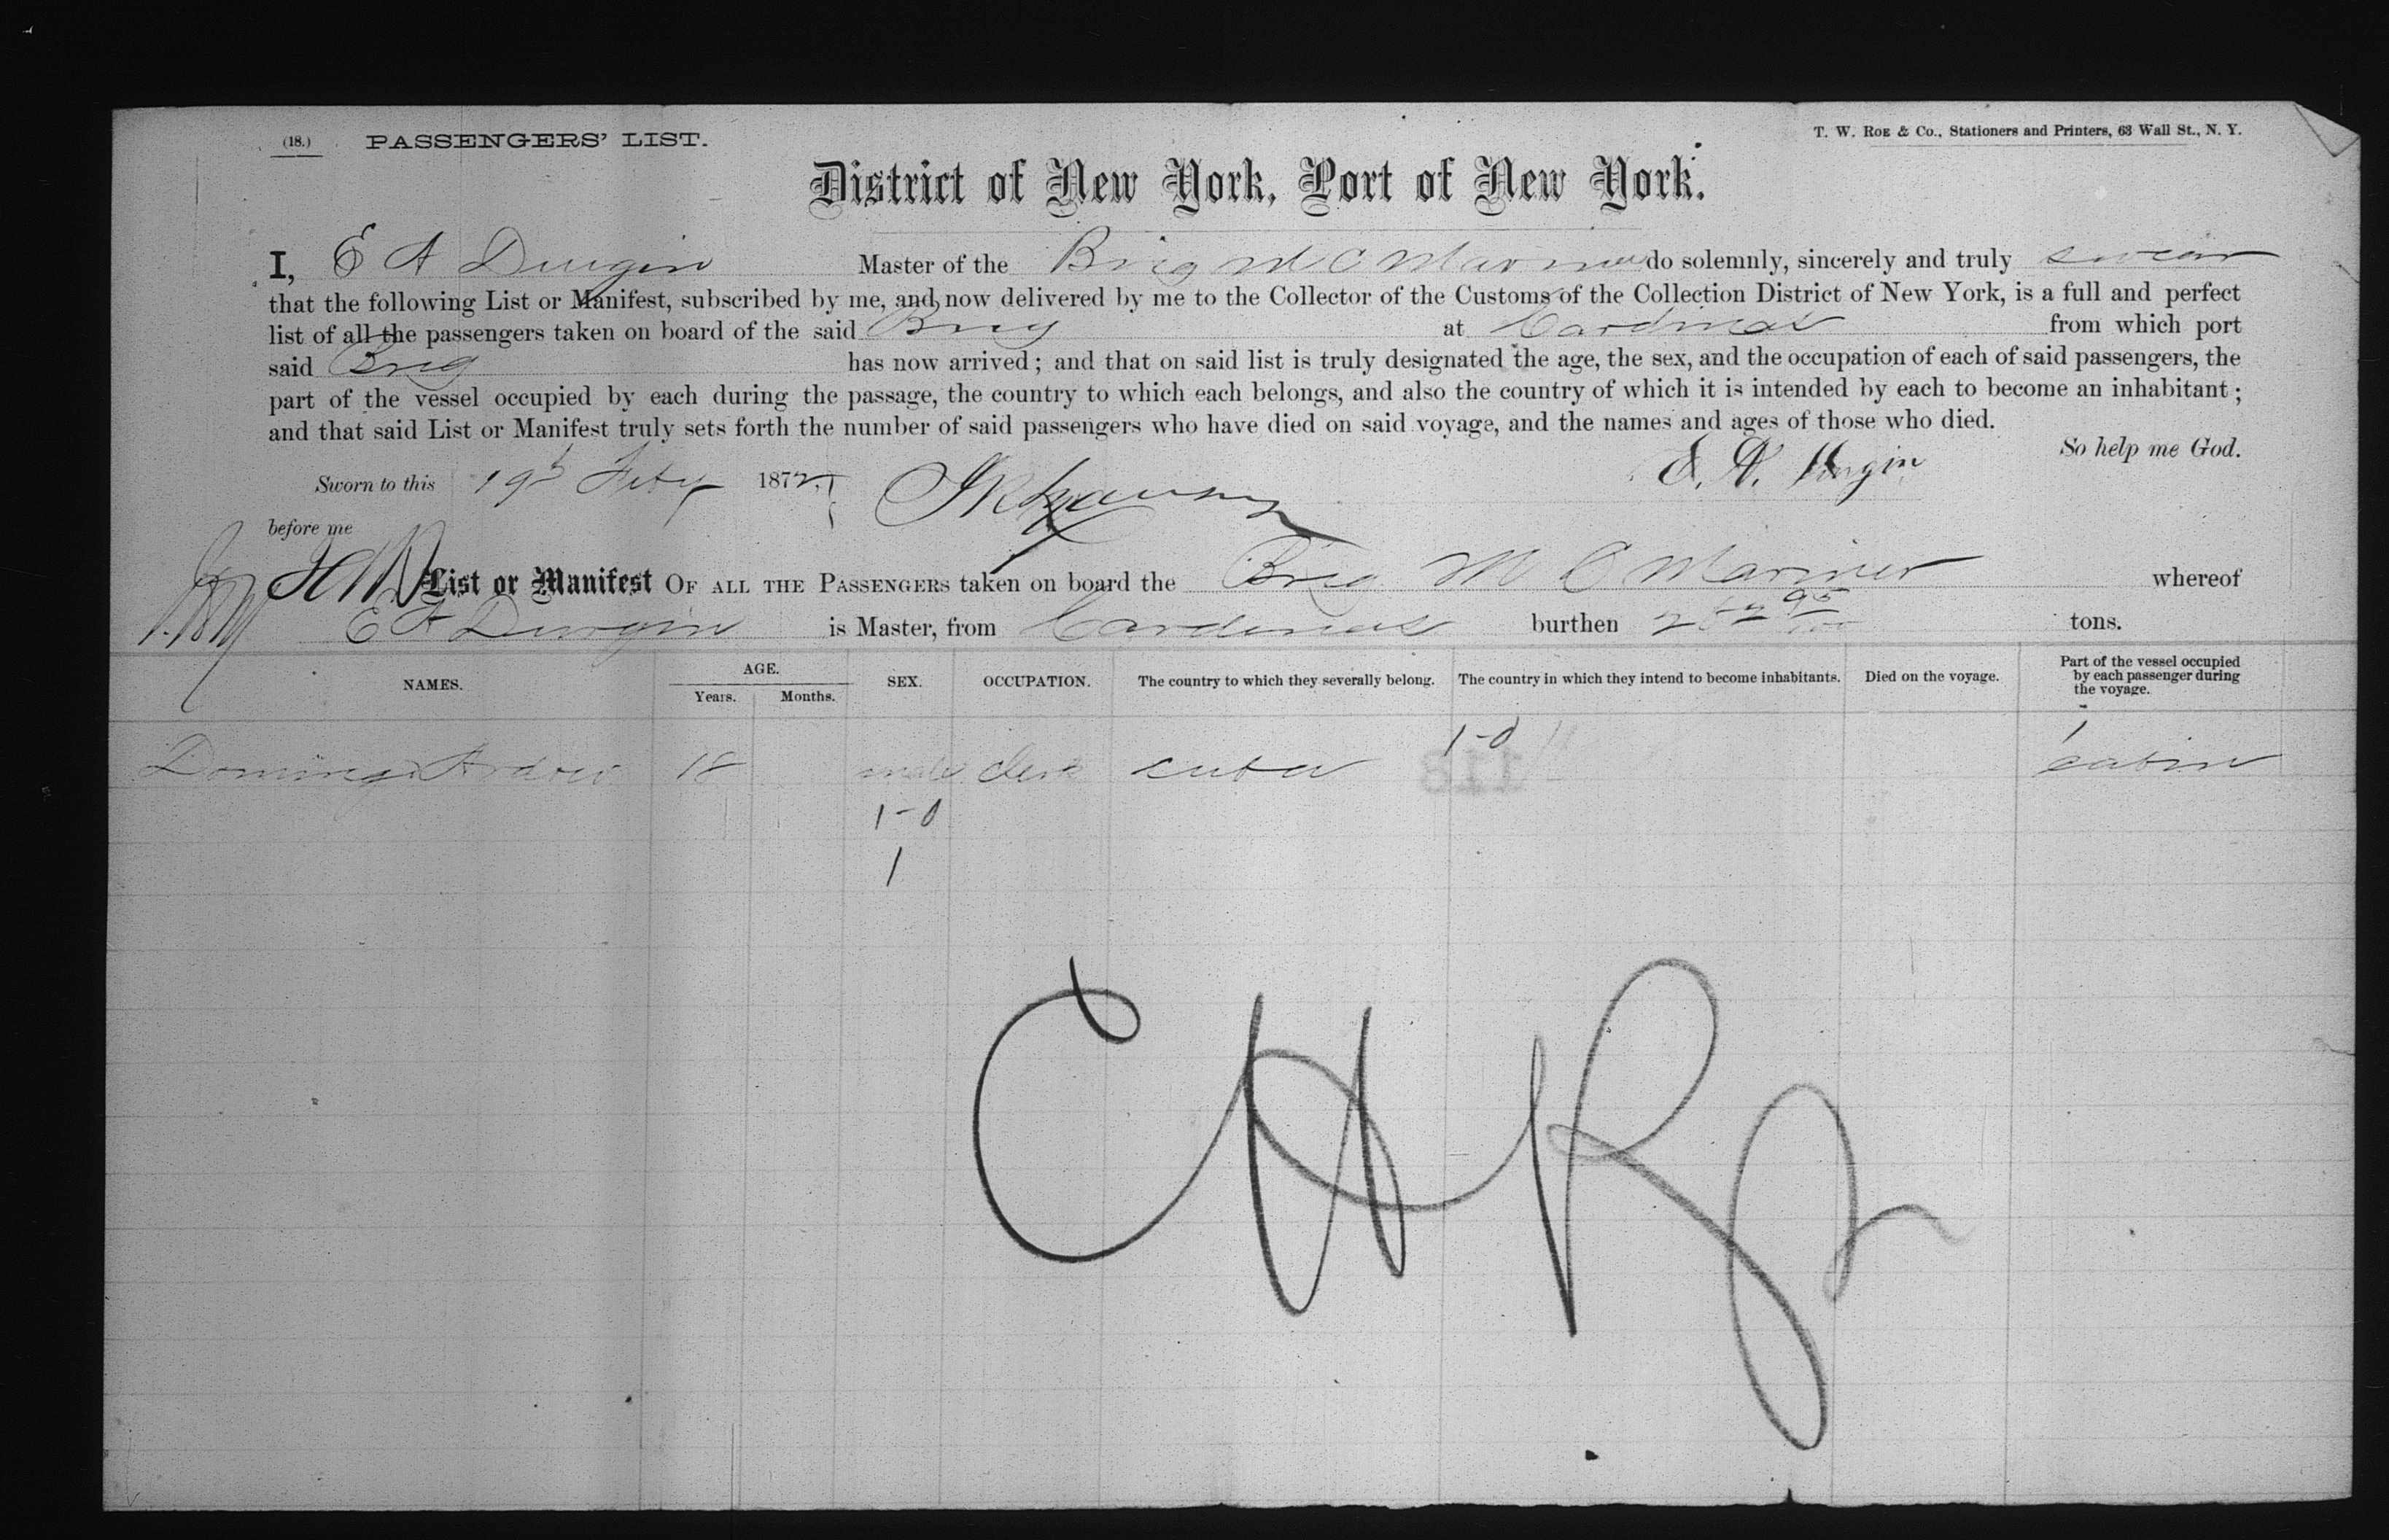 (18.) PASSENGERS' LIST.
T. W. Roe & Co., Stationers and Printers, 63 Wall St., N. Y.
District of New York, Port of New York.
I, E A Durgin Master of the Brig M C Mariner do solemnly, sincerely and truly swear
that the following List or Manifest, subscribed by me, and now delivered by me to the Collector of the Customs of the Collection District of New York, is a full and perfect
list of all the passengers taken on board of the said Brig at Cardinas from which port
said Brig has now arrived; and that on said list is truly designated the age, the sex, and the occupation of each of said passengers, the
part of the vessel occupied by each during the passage, the country to which each belongs, and also the country of which it is intended by each to become an inhabitant;
and that said List or Manifest truly sets forth the number of said passengers who have died on said voyage, and the names and ages of those who died.
So help me God.
Sworn to this 19 Feby 1872, E. A. Durgin
before me
List or Manifest OF ALL THE PASSENGERS taken on board the Brig M C Mariner whereof
E A Durgin is Master, from Cardenas burthen tons.
NAMES. AGE. Years. Months. SEX. OCCUPATION. The country to which they severally belong. The country in which they intend to become inhabitants. Died on the voyage. Part of the vessel occupied by each passenger during the voyage.
1-0 1
18 male clerk cuba cabin
1-0
1